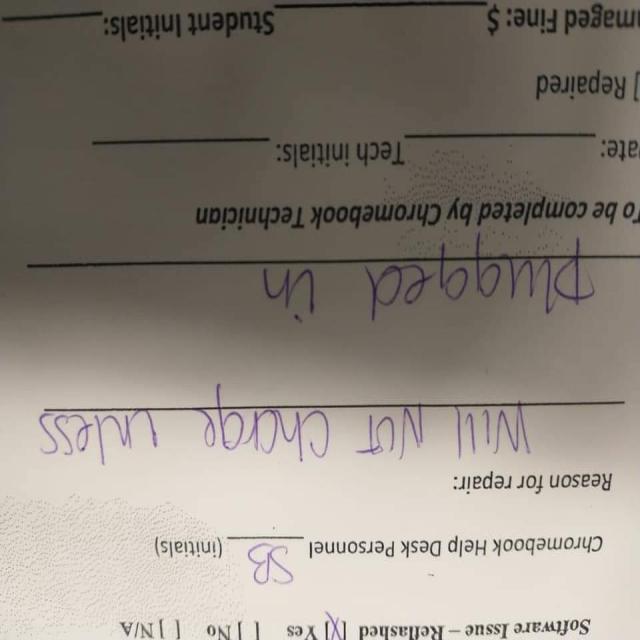 Software Issue – Reflashed [X] Yes [ ] No [ ] N/A
Chromebook Help Desk Personnel SB (initials)
Reason for repair:
Will Not Charge unless
plugged in
To be completed by Chromebook Technician
ate: Tech initials:
] Repaired
maged Fine: $ Student Initials: